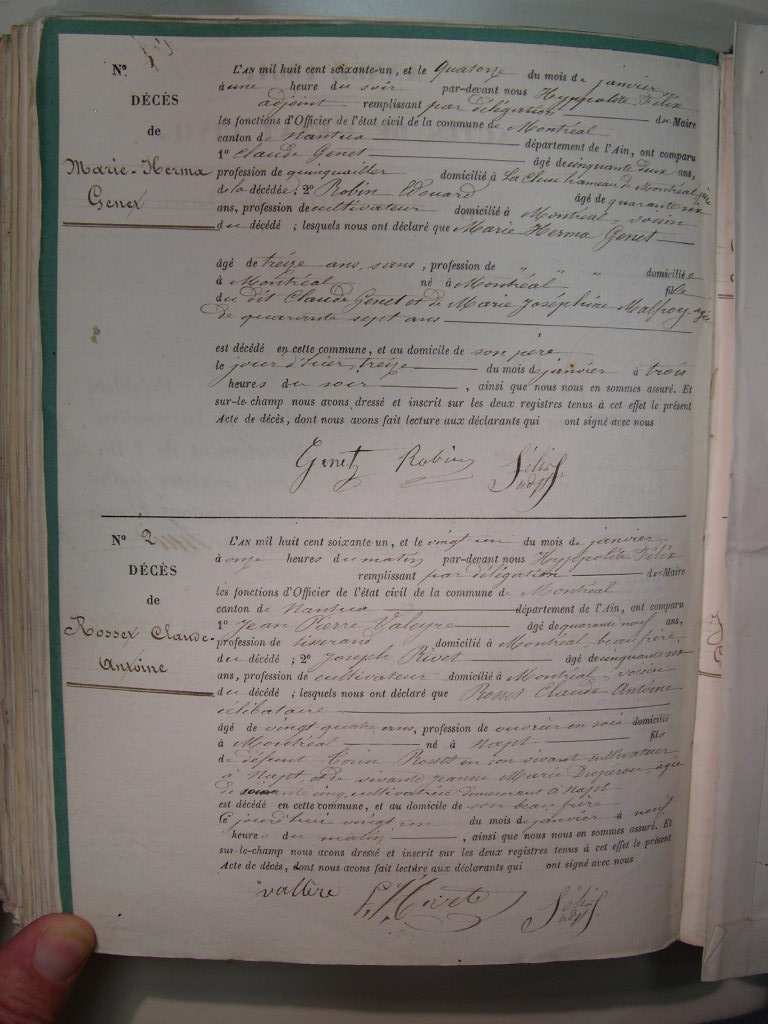 N° 1
DÉCÈS
de
Marie-Herma
Genet
L'AN mil huit cent soixante-un, et le quatorze du mois de janvier
à une heure du soir par-devant nous Hyppolite Félix
adjoint remplissant par délégation du Maire
les fonctions d'Officier de l'état civil de la commune de Montréal
canton de Nantua département de l'Ain, ont comparu
1° Claude Genet âgé de cinquante deux ans,
profession de quinquailler domicilié à La Cluse hameau de Montréal, père
de la décédée; 2° Robin Edouard âgé de quarante six
ans, profession de cultivateur domicilié à Montréal voisin
du décédé ; lesquels nous ont déclaré que Marie Herma Genet
âgé de treize ans, sans, profession de " " " domiciliée
à Montréal né à Montréal fille
du dit Claude Genet et de Marie Joséphine Malfroy âgée
de quarante sept ans
est décédé en cette commune, et au domicile de son père
le jour d'hier, treize du mois de janvier à trois
heures du soir , ainsi que nous nous en sommes assuré. Et
sur-le-champ nous avons dressé et inscrit sur les deux registres tenus à cet effet le présent
Acte de décès, dont nous avons fait lecture aux déclarants qui ont signé avec nous
Genet Robin Félix
adjt
N° 2
DÉCÈS
de
Rosset Claude-
Antoine
L'AN mil huit cent soixante-un, et le vingt un du mois de janvier
à onze heures du matin par-devant nous Hyppolite Félix
remplissant par délégation du Maire
les fonctions d'Officier de l'état civil de la commune de Montréal
canton de Nantua département de l'Ain, ont comparu
1° Jean Pierre âgé de quarante neuf ans,
profession de tisserand domicilié à Montréal beau frère
du décédé ; 2° Joseph âgé de cinquante
ans, profession de cultivateur domicilié à Montréal voisin
du décédé ; lesquels nous ont déclaré que Rosset Claude Antoine
célibataire
âgé de vingt quatre ans, profession de ouvrier en soie domicilié
à Montréal né à Napt fils
de défunt Rosset en son vivant cultivateur
à Napt, et de vivante Jeanne Marie âgée
de soixante cinq, cultivatrice demeurant à Napt
est décédé en cette commune, et au domicile de son beau frère
Ce jourd'hui vingt un du mois de janvier à neuf
heures du matin , ainsi que nous nous en sommes assuré. Et
sur-le-champ nous avons dressé et inscrit sur les deux registres tenus à cet effet le présent
Acte de décès, dont nous avons fait lecture aux déclarants qui ont signé avec nous
Félix
adjt